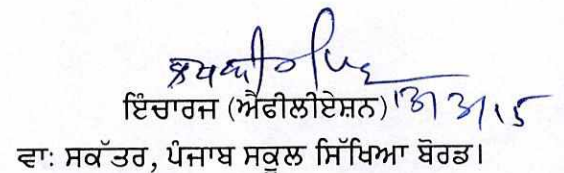 ਇੰਚਾਰਜ (ਐਫੀਲੀਏਸ਼ਨ) 13/3/15
ਵਾ: ਸਕੱਤਰ, ਪੰਜਾਬ ਸਕੂਲ ਸਿੱਖਿਆ ਬੋਰਡ।